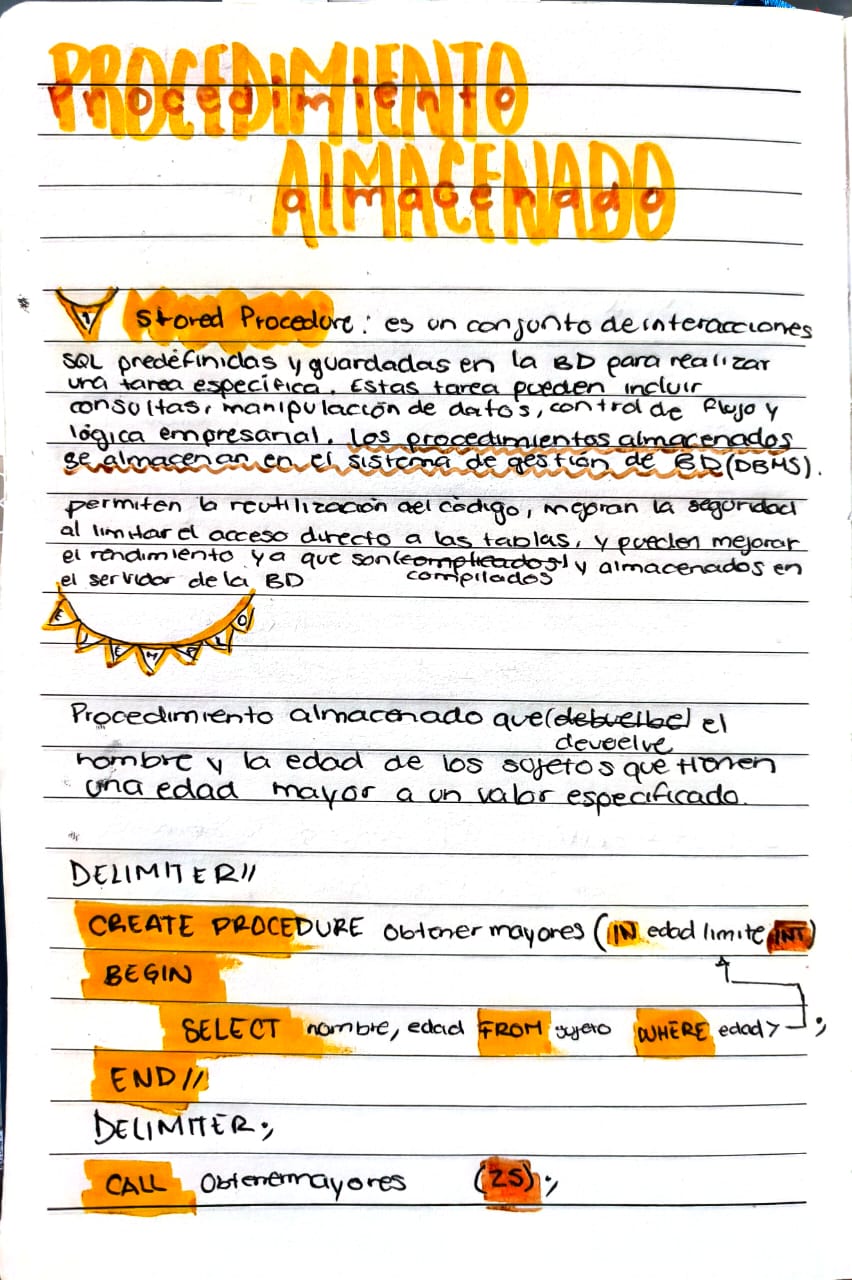 PROCEDIMIENTO
Procedimiento
ALMACENADO
almacenado
1 Stored Procedure: es un conjunto de interacciones
SQL predefinidas y guardadas en la BD para realizar
una tarea especifica. Estas tarea pueden incluir
consultas, manipulación de datos, control de flujo y
lógica empresarial. Los procedimientos almacenados
se almacenan en el sistema de gestión de BD (DBMS).
permiten la reutilización del código, mejoran la seguridad
al limitar el acceso directo a las tablas, y pueden mejorar
el rendimiento ya que son (complicados) y almacenados en
compilados
el servidor de la BD
EJEMPLO
Procedimiento almacenado que (debuelbe) el
devuelve
nombre y la edad de los sujetos que tienen
una edad mayor a un valor especificado.
DELIMITER //
CREATE PROCEDURE Obtener mayores (IN edad limite INT)
BEGIN
SELECT nombre, edad FROM sujeto WHERE edad > ;
END //
DELIMITER ;
CALL Obtenermayores (25);